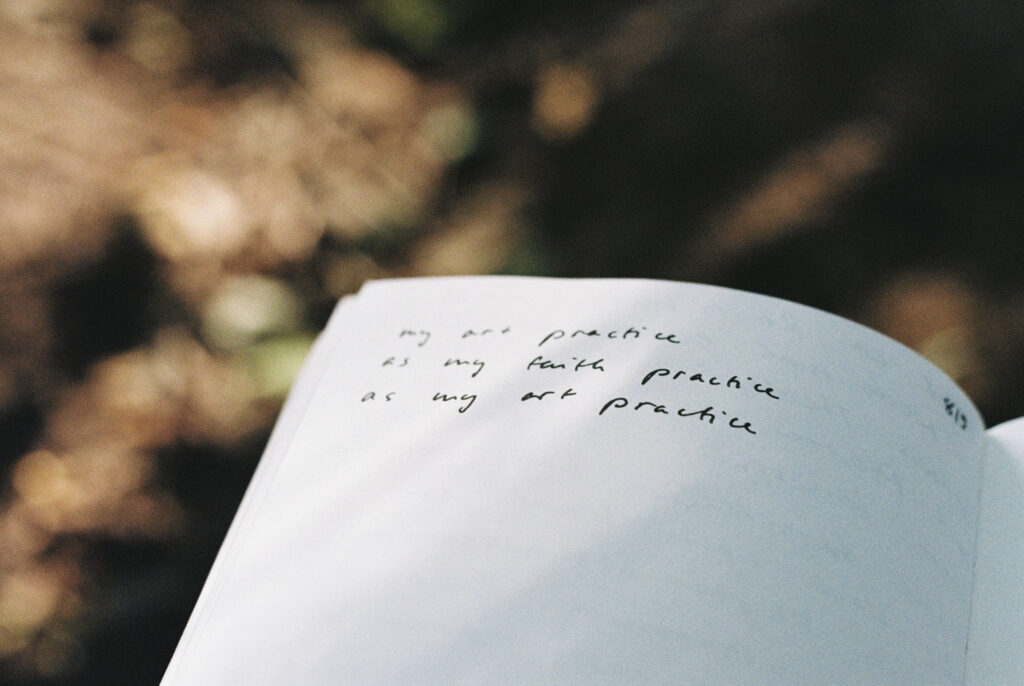 my art practice
as my faith practice
as my art practice
8/9